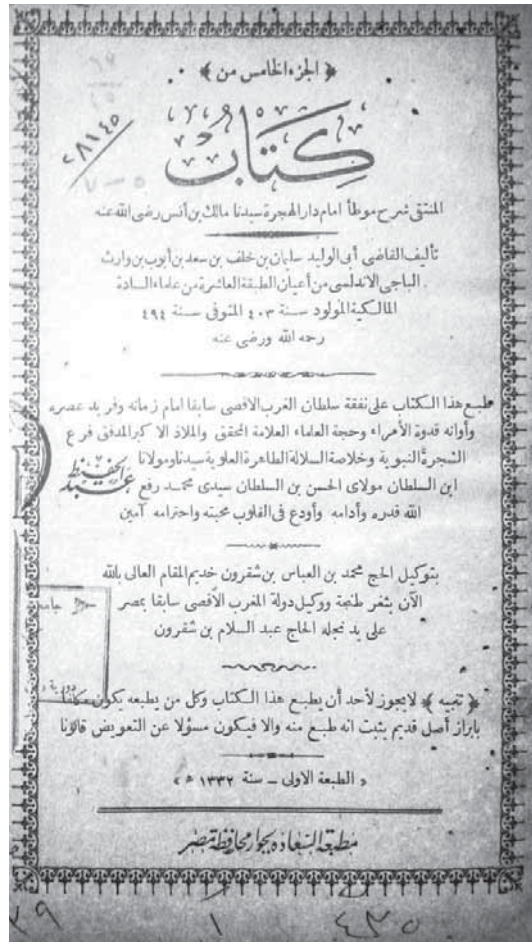 ﴿ الجزء الخامس من ﴾
كتاب
المنتقى شرح موطأ امام دار الهجرة سيدنا مالك بن أنس رضى الله عنه
تأليف القاضى أبى الوليد سليمان بن خلف بن سعد بن أيوب بن وارث
الباجى الاندلسى من أعيان الطبقة العاشرة من علماء السادة
المالكية المولود سنة ٤٠٣ المتوفى سنة ٤٩٤
رحمه الله ورضى عنه
طبع هذا الكتاب على نفقة سلطان المغرب الاقصى سابقا امام زمانه وفريد عصره
وأوانه قدوة الأمراء وحجة العلماء العلامة المحقق والملاذ الاكبر المدقق فرع
الشجرة النبوية وخلاصة السلالة الطاهرة العلوية سيدنا ومولانا عبد الحفيظ
ابن السلطان مولاى الحسن بن السلطان سيدى محمد رفع
الله قدره وأدامه وأودع فى القلوب محبته واحترامه آمين
بتوكيل الحاج محمد بن العباس بن شقرون خديم المقام العالى بالله
الآن بثغر طنجة ووكيل دولة المغرب الأقصى سابقا بمصر
على يد نجله الحاج عبد السلام بن شقرون
﴿ تنبيه ﴾ لايجوز لأحد أن يطبع هذا الكتاب وكل من يطبعه يكون مكلفا
بابراز أصل قديم يثبت انه طبع منه والا فيكون مسؤلا عن التعويض قانونا
« الطبعة الاولى – سنة ١٣٣٢ ه »
مطبعة السعاده بجوار محافظة مصر
٤٣٥
١
٣٩